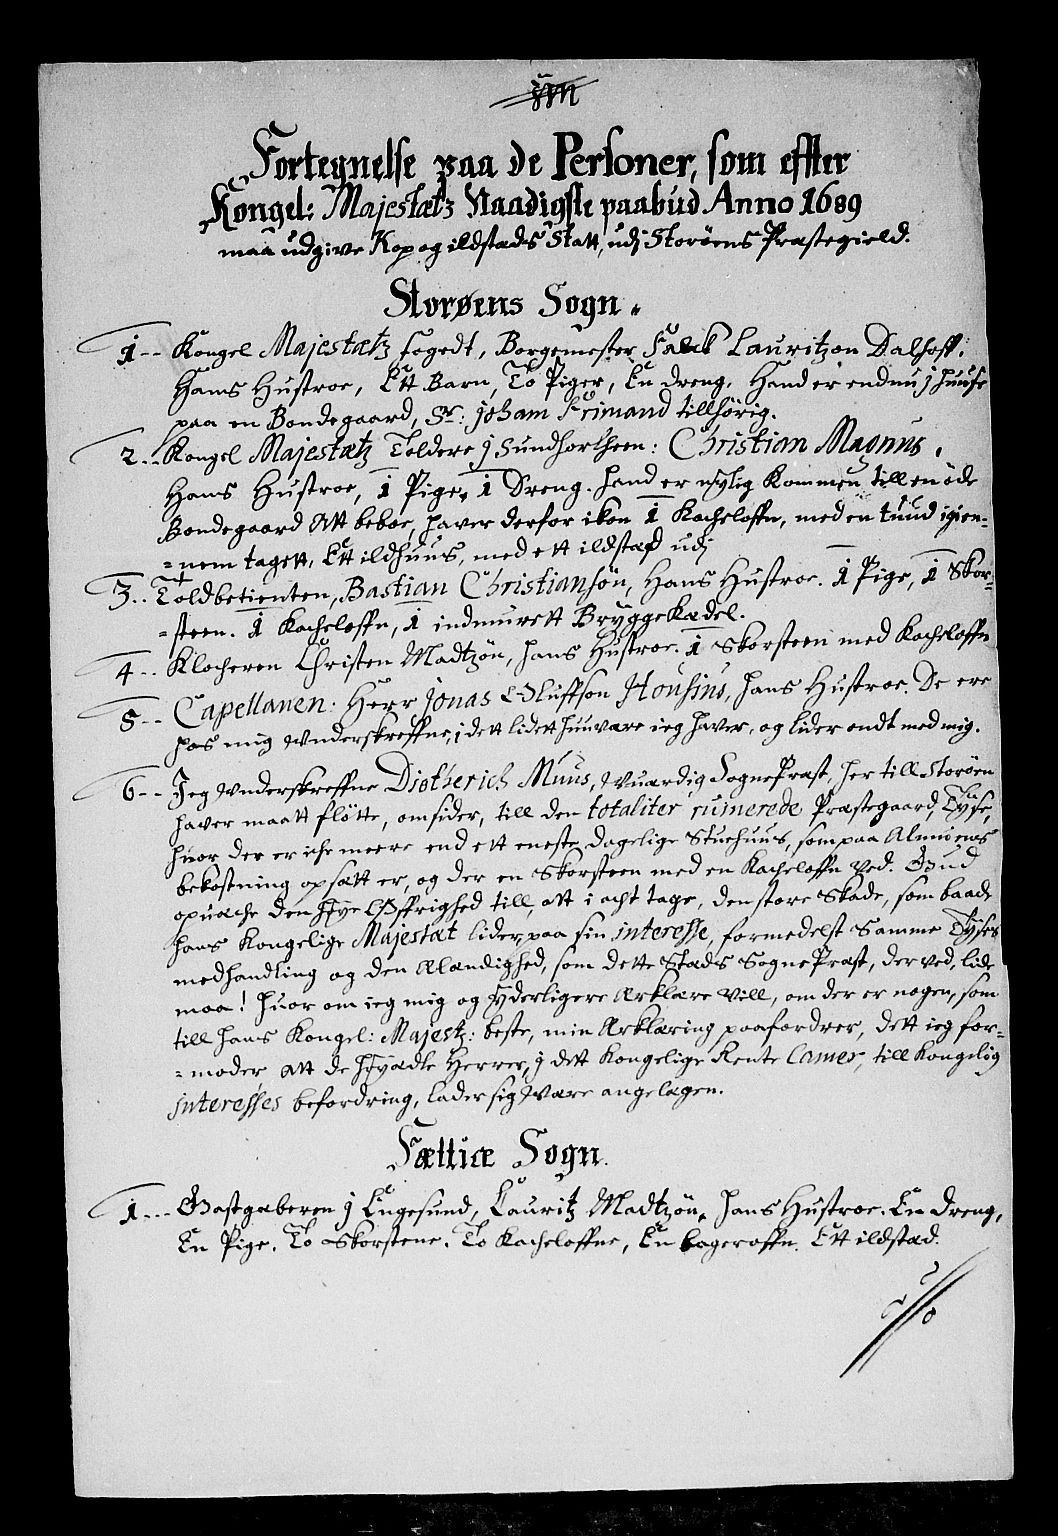 Fortegnelse paa de Personer, som effter
Kongel: Majestætz Naadigste paabud Anno 1689
maa udgive Kop og ildstæds Skatt, udj Storøens Præstegield.
Storøens Sogn.
1-- Kongel Majestætz fogedt, Borgemester Falck Lauritzøn Dalhoff.
Hans Hustroe, Ett Barn, To Piger, En dreng. Hand er endnu j huuse
paa en Bondegaard, Sr: Joham Frimand tillhörig.
2.. Kongel Majestætz Toldere j Sundhortheen: Christian Magnus.
Hans Hustroe, 1 Pige, 1 Dreng. hand er nylig kommen till en öde
Bondegaard Att beboe, haver derfor ikon 1 Kacheloffn, med en tuud igien-
=nem tagett, Ett ildhuus, med ett ildstæd udj
3.. Toldbetienten, Bastian Christiansön, Hans Hustroe. 1 Pige, 1 Skor-
=steen. 1 Kacheloffn, 1 indmurett Bryggekædel.
4-- Klocheren Christen Madtzön, hans Hustroe. 1 Skorsteen med Kacheloffn
5-- Capellanen: Herr Jonas Oluffsøn Housins, hans Hustroe. De ere
hos mig underskreffne, j dett lidett huuvære ieg haver, og lider ondt med mig.
6-- Jeg underskreffne Diotherich Muus, Uværdig SognePræst, her till Storöen
haver maatt flötte, omsider, till den totaliter ruinerede Præstegaard, Tyse,
huor der er iche meere end ett eneste dagelige Stuehuus, som paa Almuens
bekostning opsætt er, og der en Skorsteen med en Kacheloffn ved. Gud
opuache den Höye Öffrighed till, att i acht tage, den store Skade, som baade
hans Kongelige Majestæt lider, paa sin interesse, formedelst Samme Tyses
medhandling og den Ælændighed, som dette Stæds SognePræst, der ved, lide
maa! huor om ieg mig og yderligere Ærklære vill, om der er nogen, som
till hans Kongel: Majestz: beste, min Ærklæring paafordrer, dett ieg for-
=moder att de höyædle Herrer, j dett Kongelige Rente Camer, till Kongelig
interesses befordring, lader sig være angelægen.
Fættiæ Sogn.
1... Gastgæberen j Engesund, Lauritz Madtzön, hans Hustroe. En dreng,
En Pige. To Skorstene. To Kacheloffne, En bageroffn. Ett ildstæd.